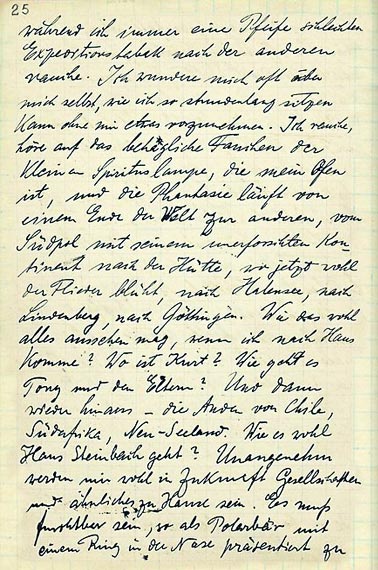 25
während ich immer eine Pfeife schlechten
Expeditionstabak nach der anderen
rauche. Ich wundere mich oft über
mich selbst, wie ich so stundenlang sitzen
kann ohne mir etwas vorzunehmen. Ich rauche,
höre auf das behägliche Fauchen der
kleinen Spirituslampe, die mein Ofen
ist, und die Phantasie läuft von
einem Ende der Welt zur anderen, vom
Südpol mit seinem unerforschten Kon-
tinent nach der Hütte, wo jetzt wohl
der Flieder blüht, nach Halensee, nach
Lindenberg, nach Göttingen. Wie das wohl
alles aussehen mag, wenn ich nach Haus
komme? Wo ist Kurt? Wie geht es
Tony und den Eltern? Und dann
wieder hinaus – die Anden von Chile,
Südafrika, Neu-Seeland. Wie es wohl
Hans Steinbach geht? Unangenehm
werden mir wohl in Zukunft Gesellschaften
und ähnliches zu Hause sein. Es muß
furchtbar sein, so als Polarbär mit
einem Ring in der Nase präsentiert zu